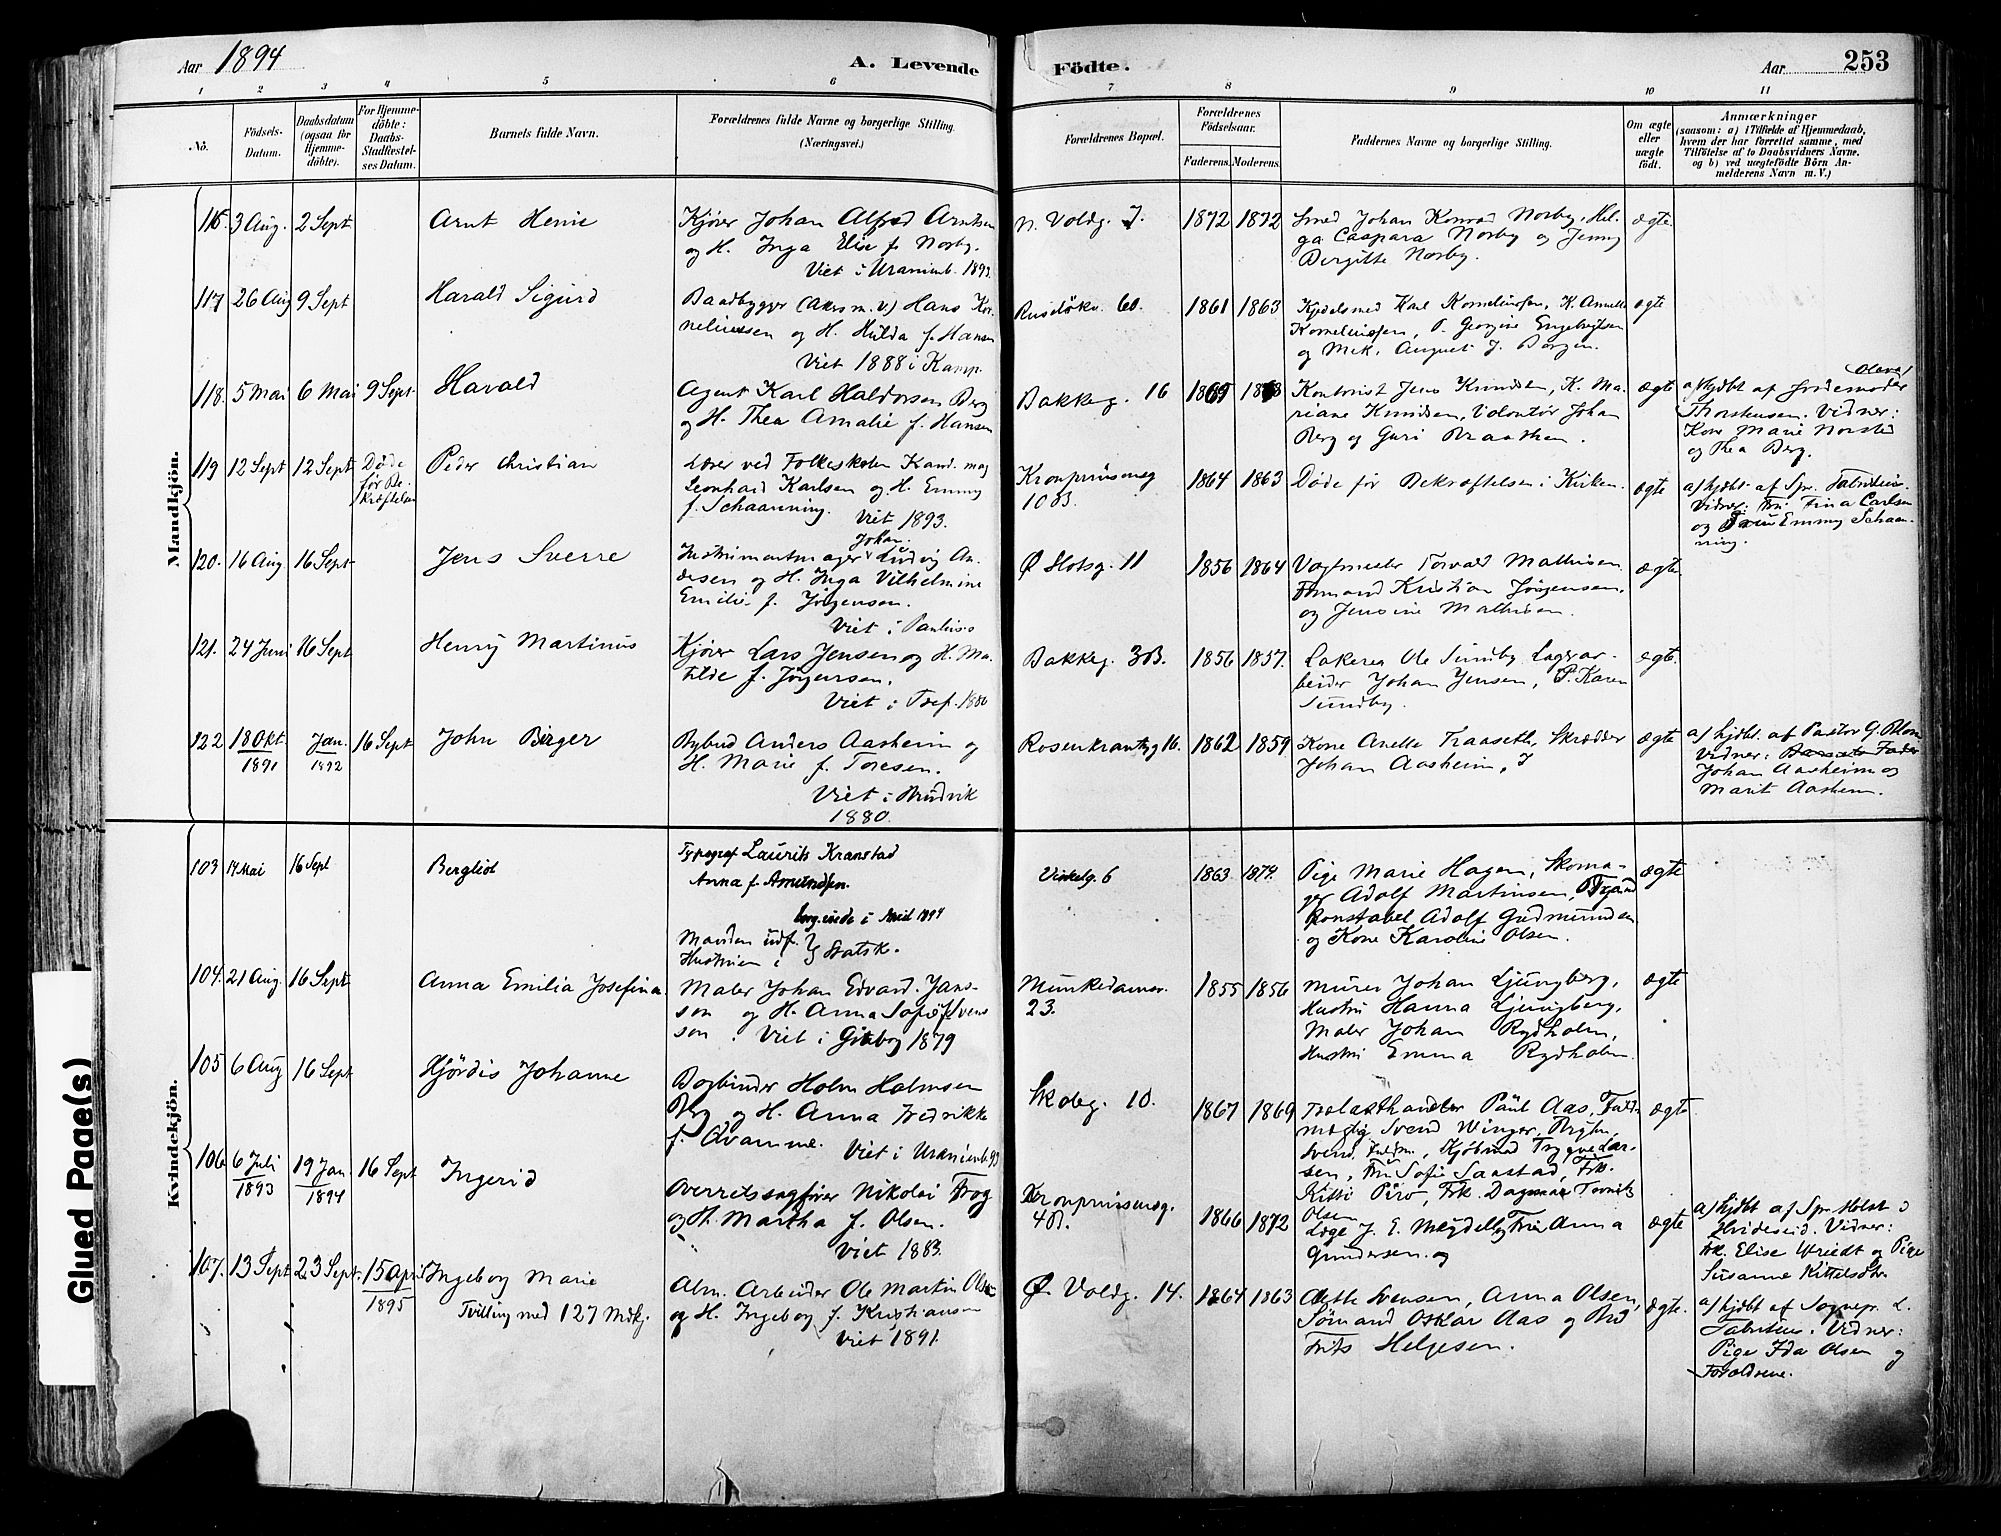 Aar 1894
A. Levende
Födte.
Aar
253
1 2 3 4 5 6 7 8 9 10 11
No.
Födsels-
Datum.
Daabsdatum
(ogsaa for
Hjemme-
döbte).
For Hjemme-
döbte:
Daabs-
Stadfæstel-
ses Datum.
Barnets fulde Navn.
Forældrenes fulde Navne og borgerlige Stilling.
(Næringsvei.)
Forældrenes Bopæl.
Forældrenes
Födselsaar.
Faderens.
Moderens.
Faddernes Navne og borgerlige Stilling.
Om ægte
eller
uægte
födt.
Anmærkninger
(saasom: a) i Tilfælde af Hjemmedaab,
hvem der har forrettet samme, med
Tilföielse af to Daabsvidners Navne.
og b) ved uægtefödte Börn An-
melderens Navn m. V.)
Mandkjön.
116. 3 Aug. 2 Sept Arnt Henie
Kjører Johan Alfred Arntsen
og H. Inga Elise f. Norby.
Viet i Uranienb. 1893.
N. Voldg. 7. 1872 1872
Smed Johan Konrad Norby, Hel-
ga Caspara Norby og Jenny
Bergitte Norby.
ægte
117 26 Aug 9 Sept Harald Sigurd
Baadbygger (Akers m. V.) Hans Kor-
neliussen og H. Hulda f. Hansen
Viet 1888 i Kamp.
Rusdökv. 60. 1861 1863
Kjedelsmed Karl Korneliussen, K. Annette
Korneliussen, P. Georgine Engebregtsen
og Mek. August J. Borgen.
ægte
118. 5 Mai 6 Mai 9 Sept Harald
Agent Karl Haldorsen Berg
og H. Thea Amalie f. Hansen
Bakkeg. 16
Kontorist Jens Knudsen, K. Ma-
riane Knudsen, Volontør Johan
Berg og Guri Braathen.
ægte
a/ hjdbt af Jordemoder
Thorstensen. Vidner:
Kone Marie Norsted
og Thea Berg.
119 12 Sept 12 Sept Døde
før Be-
kræftelsen
Peder Christian
Lærer ved Folkeskolen Kand. mag
Leonhard Karlsen og H. Emmy
f. Schaanning. Viet 1893.
Kronprinsensg
10B. 1864 1863
Døde før Bekræftelsen i Kirken.
ægte
a/ hjdbt af Spr. Fabritius.
Vidner: Fru Tina Carlsen
og Emmy Schaan-
ning.
120. 16 Aug 16 Sept Jens Sverre
Johan
Instrumentmager Ludvig An-
dersen og H. Inga Vilhelmine
Emilie f. Jörgensen.
Viet i Paulus
Ø Slotsg. 11 1856 1864
Vagtmester Torvald Mathisen
Formand Kristian Jörgensen,
og Jensine Mathisen.
ægte
121. 24 Juni 16 Sept Henry Martinus
Kjører Lars Jensen og H. Ma-
tilde f. Jörgensen.
Viet i Tref. 1880
Bakkeg. 3B. 1856 1857.
Lakerer Ole Sundby, Lagerar-
beider Johan Jensen, P. Karen
Sundby.
ægte.
122 18 Okt.
1891
Jan.
1892
16 Sept John Birger
Bybud Anders Aasheim og
H. Marie f. Toresen.
Viet i Bruvik
1880.
Rosenkrantzg 16. 1862 1859
Kone Anette Traaseth, Skrædder
Johan Aasheim, J
ægte
a/ hjdbt. af Pastor G. Blom
Vidner:
Johan Aasheim og
Marit Aasheim.
Kvindekjön.
103 14 Mai 16 Sept Bergliot
Typograf Laurits Kranstad
Anna f. Amundsen.
borg. viede i April 1894
Manden udf.
Hustruen i } Statsk.
Vinkelg. 6 1863. 1874.
Pige Marie Hagen, Skoma-
ger Adolf Martinsen,
Konstabel Adolf Gudmundsen
og Kone Karoline Olsen.
ægte
104. 21 Aug. 16 Sept Anna Emilia Josefina.
Maler Johan Edvard Jans-
son og H. Anna Sofie f. Svens
son. Viet i Gøteborg 1879
Munkedamsv.
23. 1855 1856
Murer Johan Ljungberg,
Hustru Hanna Ljungberg,
Maler Johan Rydholm,
Hustru Emma Rydholm.
ægte
105 6 Aug 16 Sept Hjördis Johanne
Bogbinder Holm Halmsen
Berg og H. Anna Fredrikke
f. Qvamme. Viet i Uranienb. 93
Skoleg. 10. 1867 1869
Trælasthandler Paul Aas,
Svend Winger,
Kjøbmd Trygve Lar-
sen, Fru Sofie Saastad, Frk.
Kitti Piro, Frk. Dagmar
Olsen
ægte
106 6 Juli
1893
19 Jan
1894
16 Sept Ingerid
Overretssagfører Nikolai Frog
og H. Martha f. Olsen.
Viet 1883.
Kronprinsensg.
4B. 1866 1872
Læge J. E. Mejdell, Fru Anna
Gundersen og
ægte
a/ hjdbt af Spr. Holst i
Hvideseid. Vidner:
Frk. Elise Wriedt og Pige
Susanne Kittelsdtr.
107. 13 Sept 23 Sept. 15 April
1895
Ingeborg Marie
Tvilling med 127 Mdkj.
Alm. Arbeider Ole Martin Olsen
og H. Ingeborg f. Kristiansen
Viet 1891.
Ø. Voldg. 14. 1864 1863
Agthe Svensen, Anna Olsen,
Sømand Oskar Aas og
Frits Helgesen.
ægte.
a/ hjdbt af Sognepr. L.
Fabritius. Vidner:
Pige Ida Olsen og
Forældrene.
Glued Page(s)